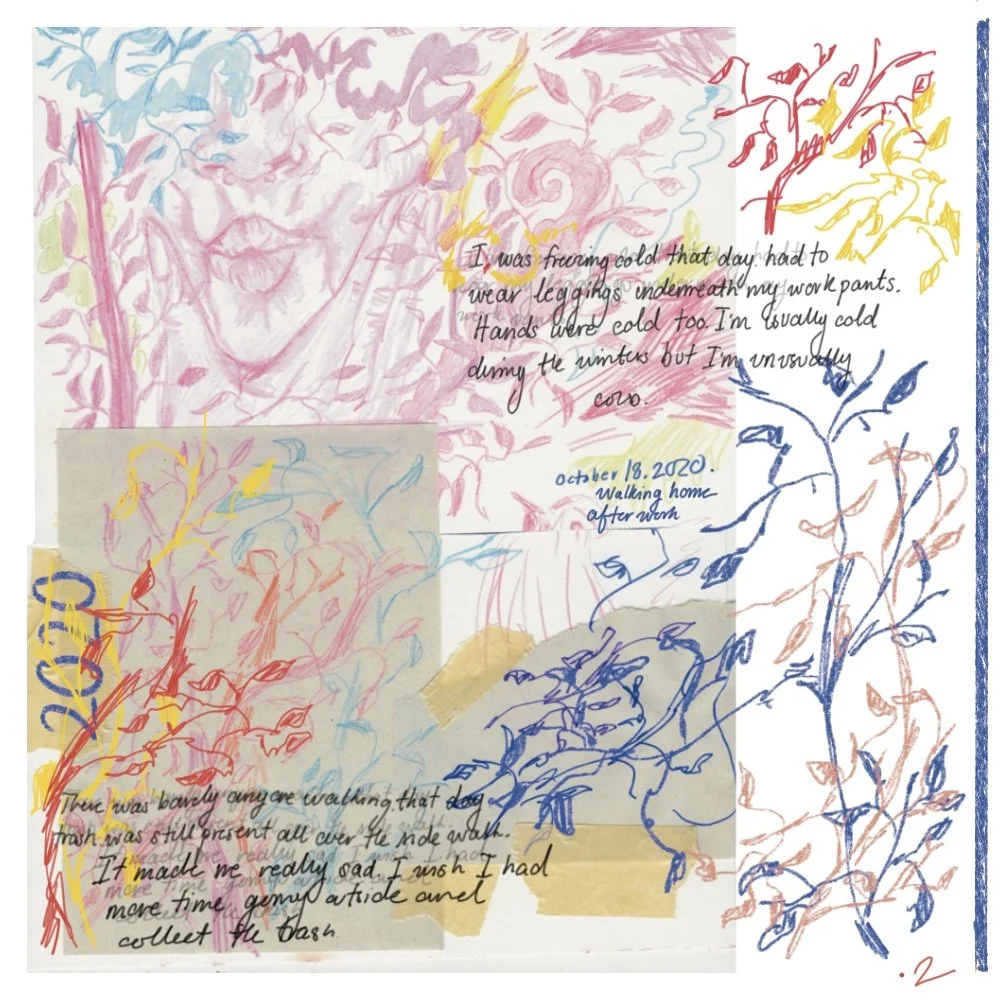 I was freezing cold that day. had to
wear leggings underneath my work pants.
Hands were cold too. I'm usually cold
during the winters but I'm unusually
cold.
october 18. 2020.
Walking home
after work
There was barely anyone walking that day
trash was still present all over the side walk.
It made me really sad. I wish I had
more time going outside and
collect the trash.
.2